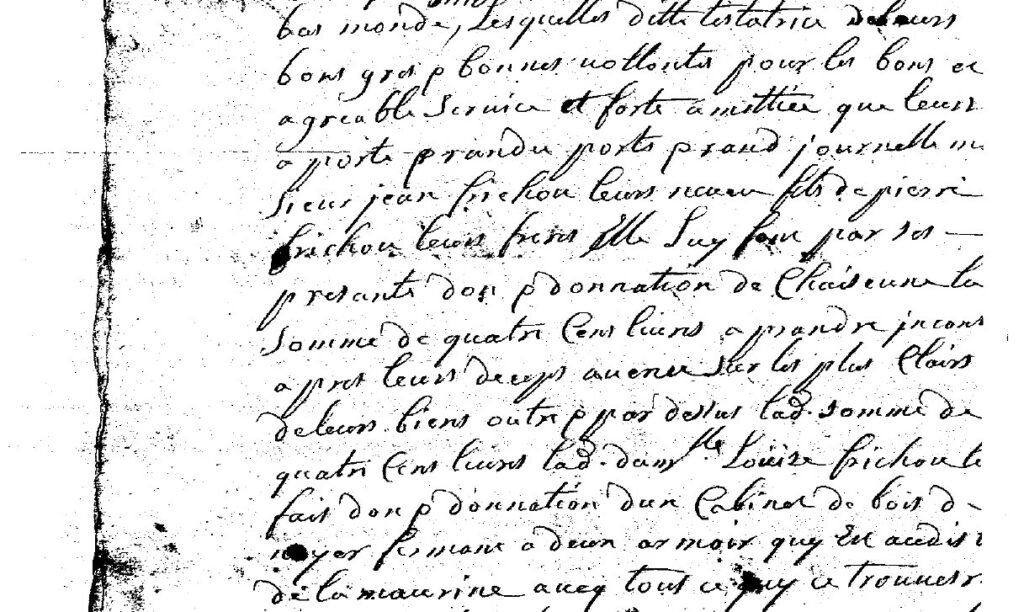 bas monde, Lesquelles ditte testatrice deleurs
bons gres & bonnes vollontes pour les bons et
agreable service et forte amittiée que leurs
a porte & randu porte & rand journellem
sieur jean frichou leurs neveu fils de pierre
frichou leurs frere Elle Luy font par ses —
presante don & donnation de Chaiseune la
somme de quatre Cens livres a prandre incont
apres leurs deceps avenu sur les plus Clairs
deleurs biens outre & par dessus lad. somme de
quatre Cens livres lad. dam.lle Louise frichou
fait don & donnation dun Cabinet de bois de
noyer fermant a deux armoir quy Est
de la avecq tout ce quy ce trouvera